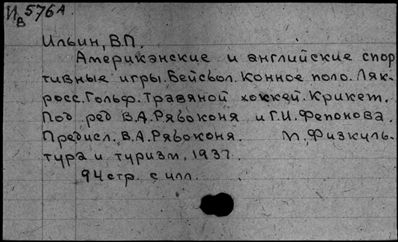 И 576А
В
Ильин, В.П.
Американские и английские спор
тивные игры. Бейсбол. Конное поло. Ляк-
росс. Гольф. Травяной хоккей. Крикет.
Под ред В.А. Рявоконя и Г.И. Фепонова.
Предисл. В.А. Рявоконя. М, Физкуль-
тура и туризм, 1937.
94 стр. с илл.